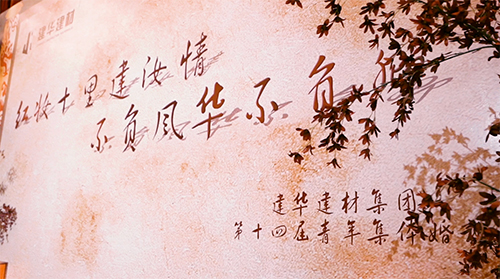 建华建材
红妆十里建汝情
不负风华不负
建华建材集团
第十四届青年集体婚